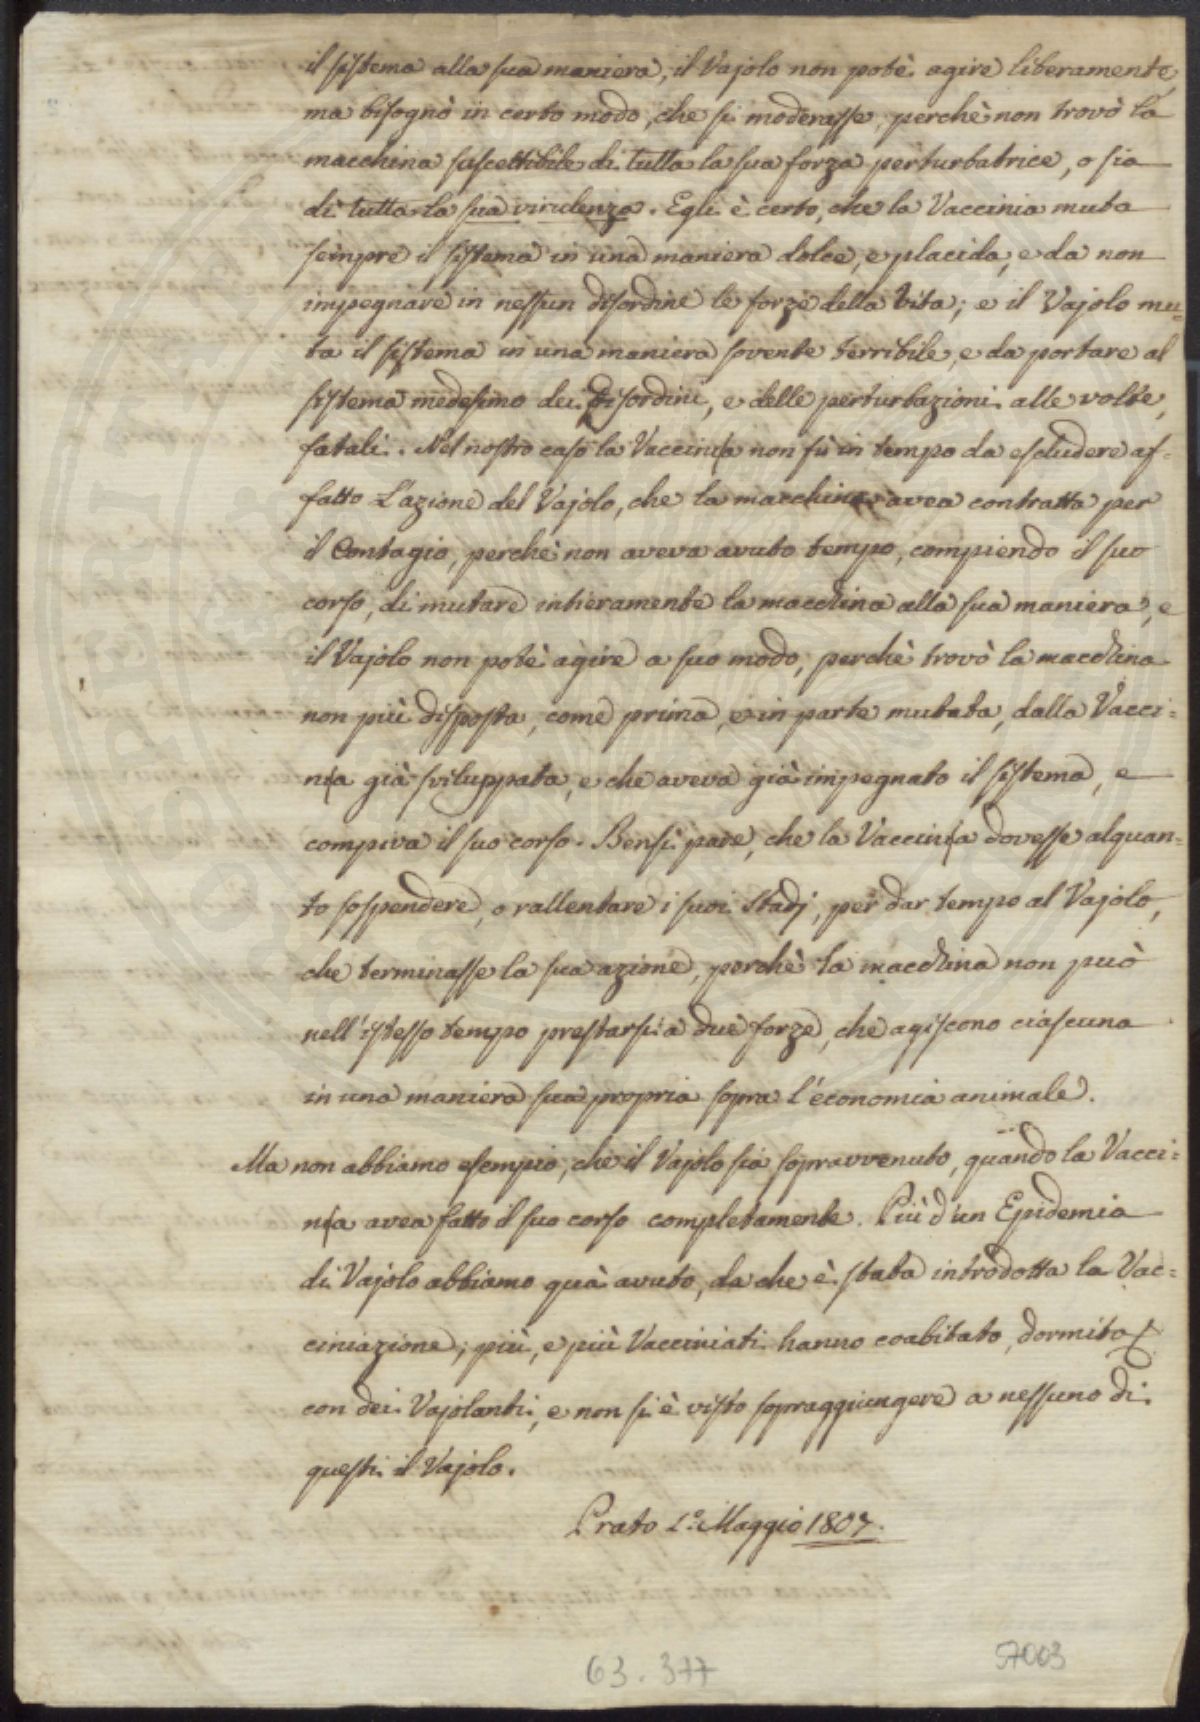 il sistema alla sua maniera, il Vajolo non potè agire liberamente,
ma bisognò in certo modo, che si moderasse, perchè non trovò la
macchina suscettibile di tutta la sua forza perturbatrice, o sia
di tutta la sua virulenza. Egli è certo, che la Vaccinia muta
sempre il sistema in una maniera dolce, e placida, e da non
impegnare in nessun disordine le forze della vita; e il Vajolo mu=
ta il sistema in una maniera sovente terribile, e da portare al
sistema medesimo dei disordini, e delle perturbazioni alle volte,
fatali. Nel nostro caso la Vaccina non fù in tempo da escludere af=
fatto l'azione del Vajolo, che la macchina avea contratta per
il Contagio, perchè non aveva avuto tempo, compiendo il suo
corso, di mutare intieramente la macchina alla sua maniera, e
il Vajolo non potè agire a suo modo, perchè trovò la macchina
non più disposta, come prima, e in parte mutata, dalla Vacci=
na già sviluppata, e che aveva già impegnato il sistema, e
compiva il suo corso. Bensì pare, che la Vaccina dovesse alquan=
to sospendere, o rallentare i suoi stadj, per dar tempo al Vajolo,
che terminasse la sua azione, perchè la macchina non può
nell'istesso tempo prestarsi a due forze, che agiscono ciascuna
in una maniera sua propria sopra l'economia animale.
Ma non abbiamo esempio, che il Vajolo sia sopravvenuto, quando la Vacci=
na avea fatto il suo corso completamente. Più d'un Epidemia
di Vajolo abbiamo quà avuto, da che è stata introdotta la Vac=
ciniazione; più, e più Vacciniati hanno coabitato, dormito
con dei Vajolanti, e non si è visto sopraggiungere a nessuno di
questi il Vajolo.
Prato 1.º Maggio 1807.
63.377
57003